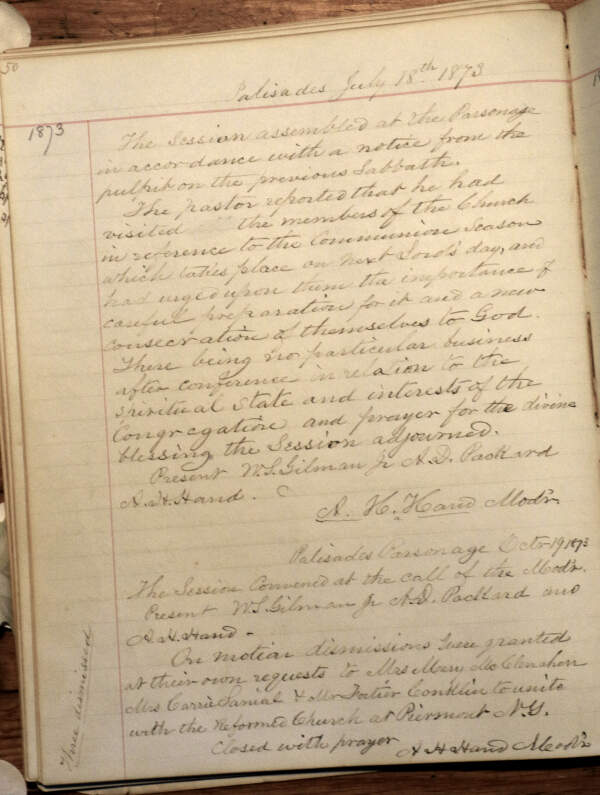 50
Palisades July 18th 1873
1873
The Session assembled at the Parsonage
in accordance with a notice from the
pulpit on the previous Sabbath.
The pastor reported that he had
visited the members of the Church
in reference to the Communion Season
which takes place on next Lord's day, and
had urged upon them the importance of
careful preparation for it and a new
consecration of themselves to God.
There being no particular business
after conference in relation to the
spiritual state and interests of the
Congregation and prayer for the divine
blessing the Session adjourned.
Present W.S. Gilman Jr A.D. Packard
A.H. Hand.
A. H. Hand Mod'r.
Palisades Parsonage Octr 19 1873
The Session Convened at the call of the Mod'r.
Present W.S. Gilman Jr A.D. Packard and
A.H. Hand -
Three dismissed
On motion dismissions were granted
at their own requests to Mrs Mary McClenahan
Mrs Carrie & Mr Conklin to unite
with the Reformed Church at Piermont N.Y.
Closed with prayer
A H Hand Mod'r